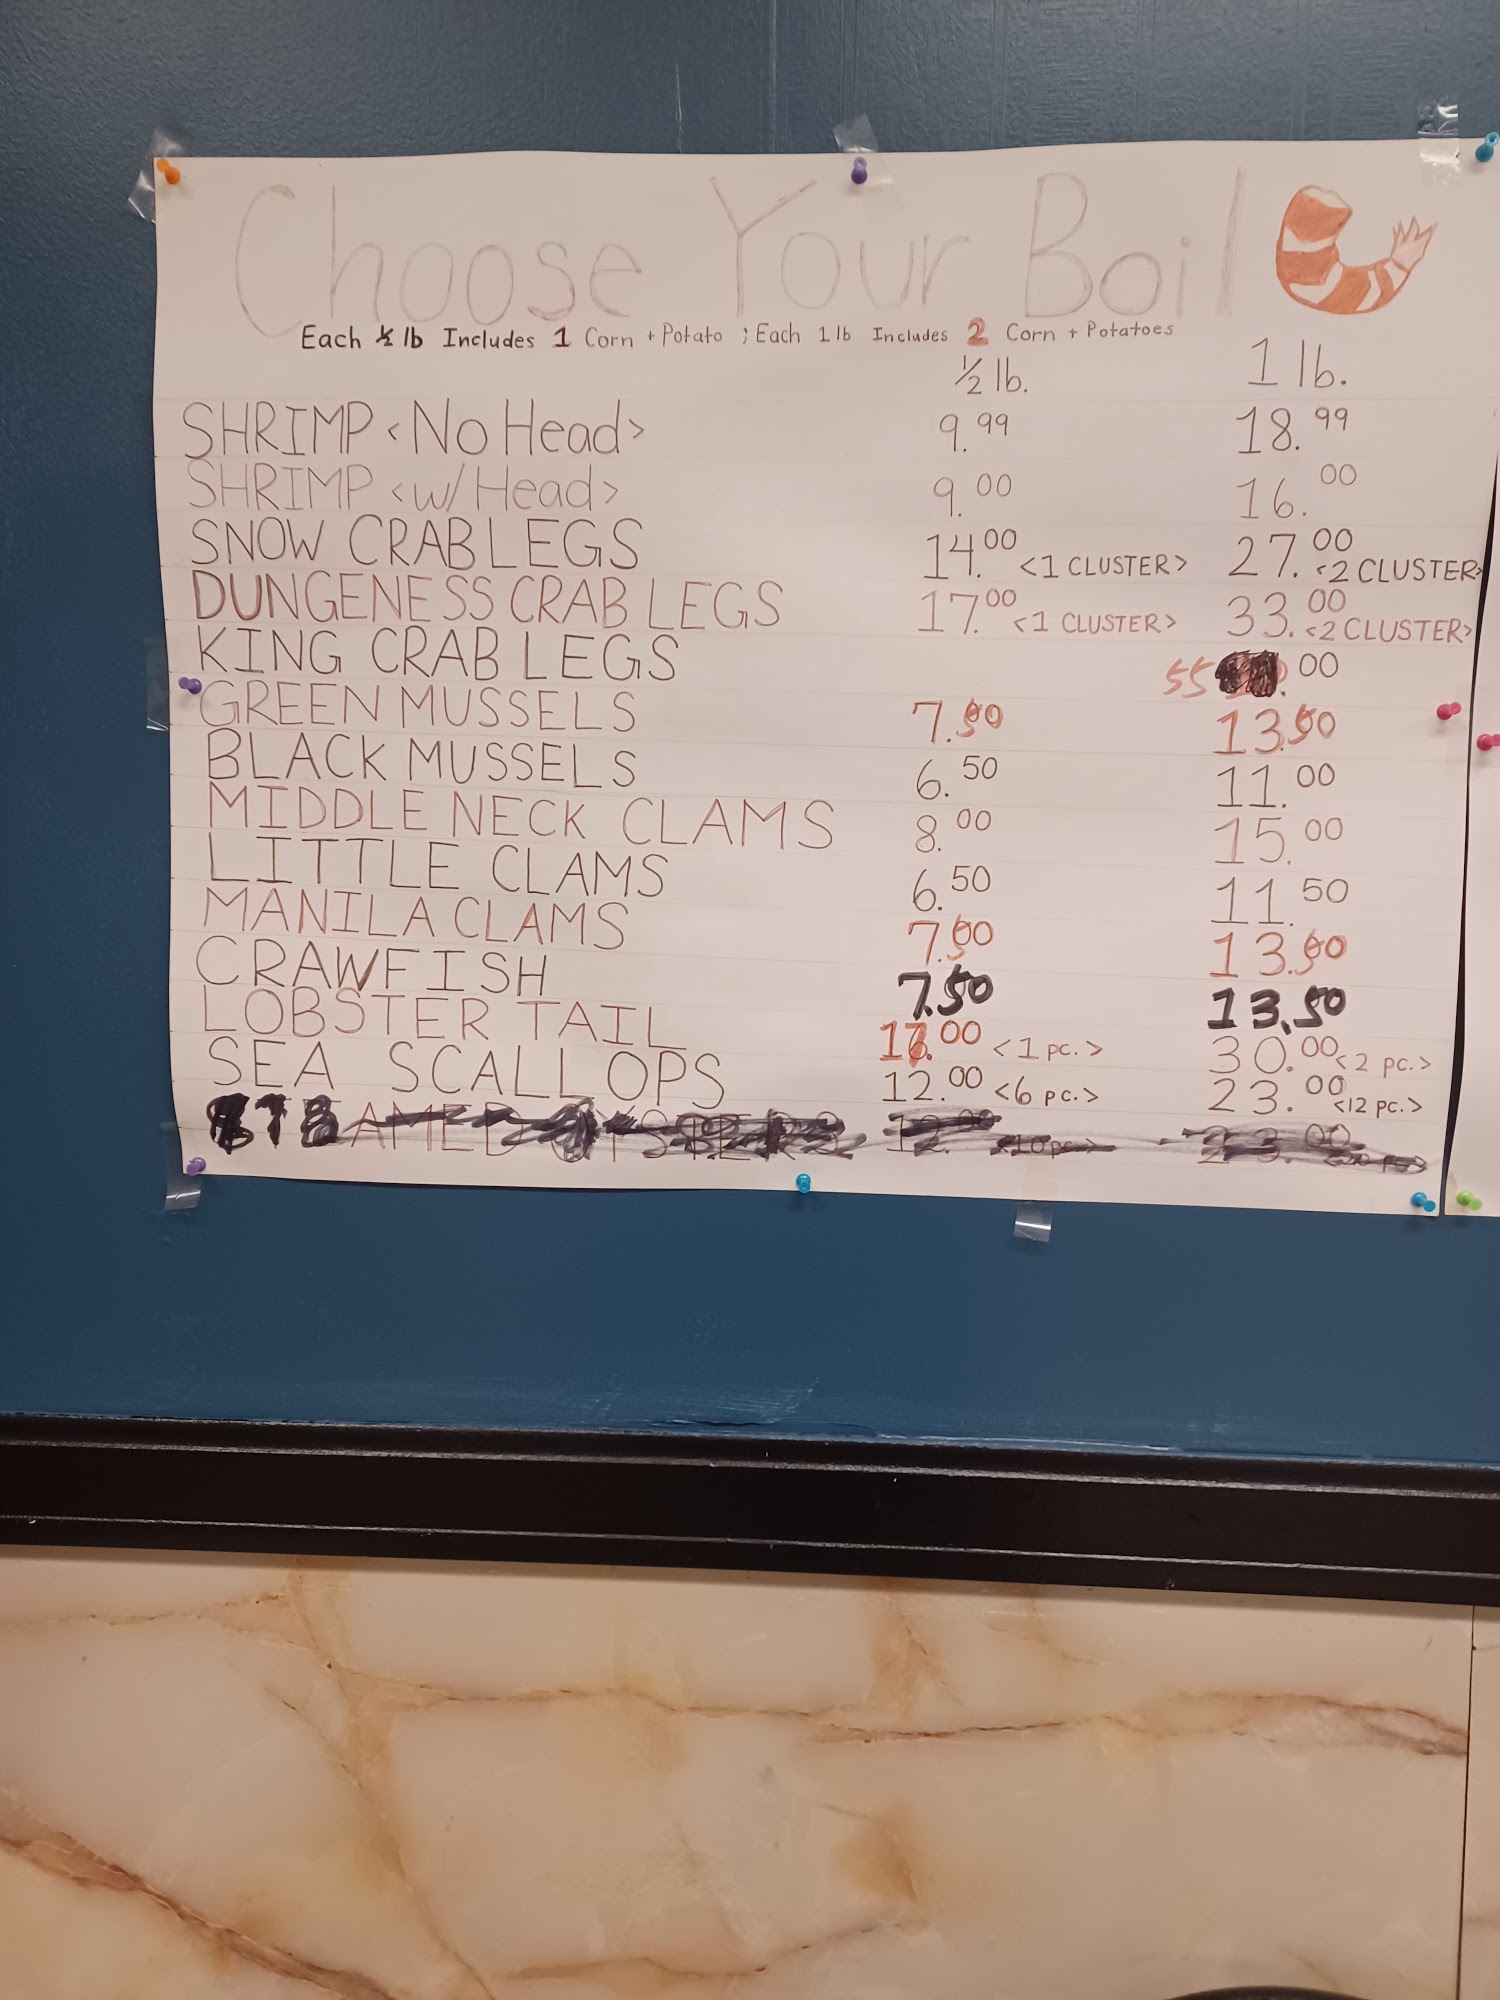 Choose Your Boil
Each ½ lb Includes 1 Corn + Potato ; Each 1 lb Includes 2 Corn + Potatoes
½ lb. 1 lb.
SHRIMP <No Head> 9.99 18.99
SHRIMP <w/Head> 9.00 16.00
SNOW CRAB LEGS 14.00 <1 CLUSTER> 27.00 <2 CLUSTER>
DUNGENESS CRAB LEGS 17.00 <1 CLUSTER> 33.00 <2 CLUSTER>
KING CRAB LEGS 55.00
GREEN MUSSELS 7.50 13.50
BLACK MUSSELS 6.50 11.00
MIDDLE NECK CLAMS 8.00 15.00
LITTLE CLAMS 6.50 11.50
MANILA CLAMS 7.50 13.50
CRAWFISH 7.50 13.50
LOBSTER TAIL .00 <1 pc.> 30.00 <2 pc.>
SEA SCALLOPS 12.00 <6 pc.> 23.00 <12 pc.>